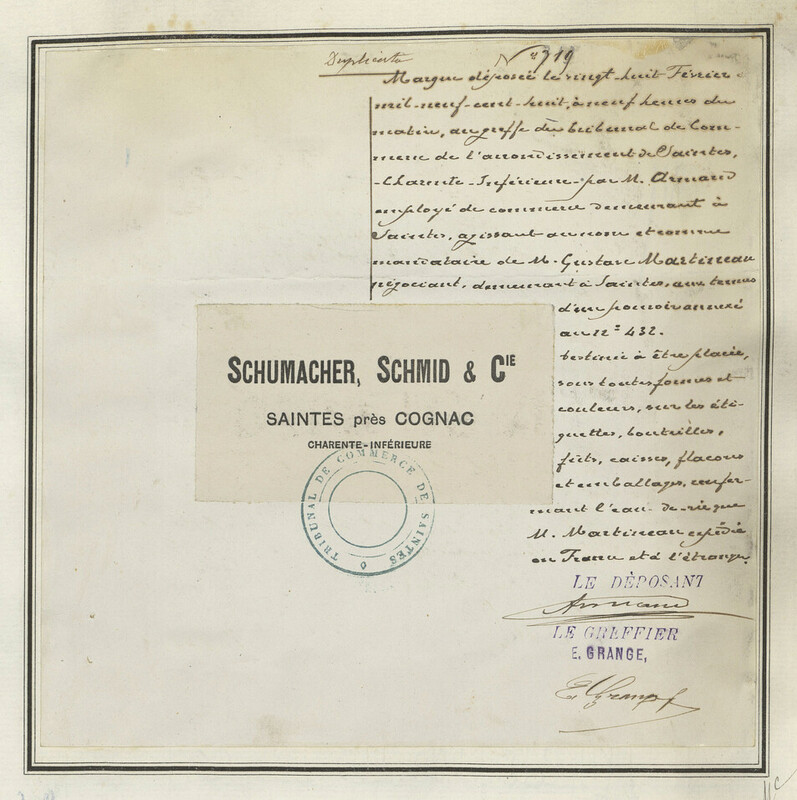 Duplicata
N° 719
Marque déposée le vingt-huit Février
mil-neuf-cent-huit, à neuf heures du
matin, au greffe du tribunal de Com-
merce de l'arrondissement de Saintes,
-Charente-Inférieure-par M. Armand
employé de commerce demeurant à
Saintes, agissant au nom et comme
mandataire de M. Gustave Martineau
négociant, demeurant à Saintes, aux termes
d'un pouvoir annexé
au n° 432.
Destinée à être placée,
sous toutes formes et
couleurs, sur les éti-
quettes, bouteilles,
fûts, caisses, flacons
et emballages, renfer-
mant l'eau-de-vie que
M. Martineau expédie
en France et à l'étranger.
SCHUMACHER, SCHMID & CIE
SAINTES près COGNAC
CHARENTE-INFÉRIEURE
TRIBUNAL DE COMMERCE DE SAINTES
LE DÉPOSANT
Armand
LE GREFFIER
E. GRANGE,
E. Grange